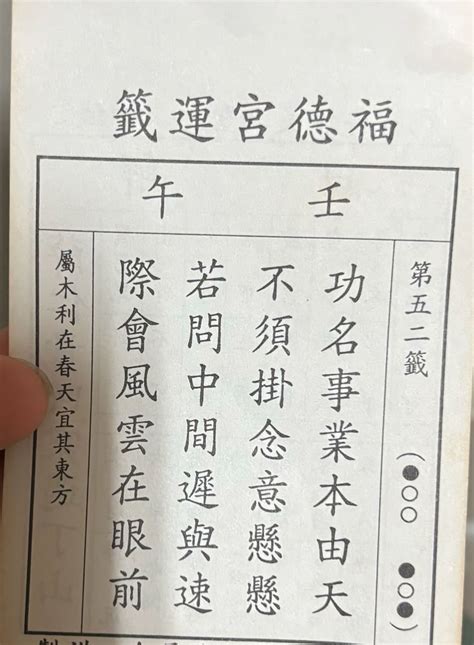 福德宮運籤
壬午
第五二籤 (●○○ ●○●)
功名事業本由天
不須掛念意懸懸
若問中間遲與速
際會風雲在眼前
屬木利在春天宜其東方